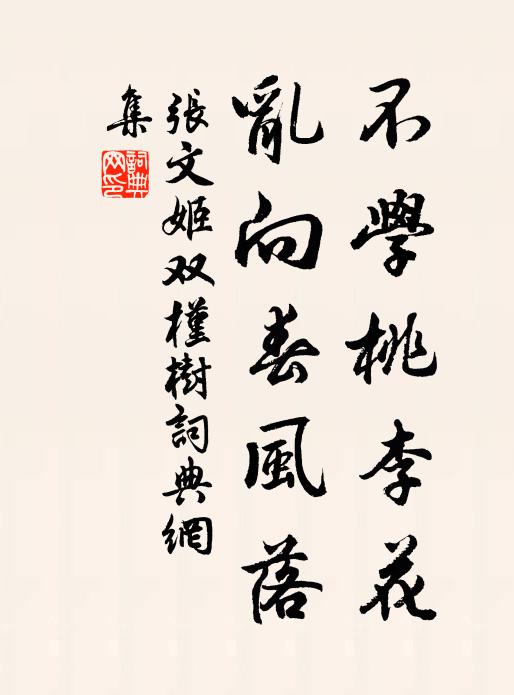 不學桃李花
亂向春風落
張文姬双槿樹詞典網
集
詞典網印